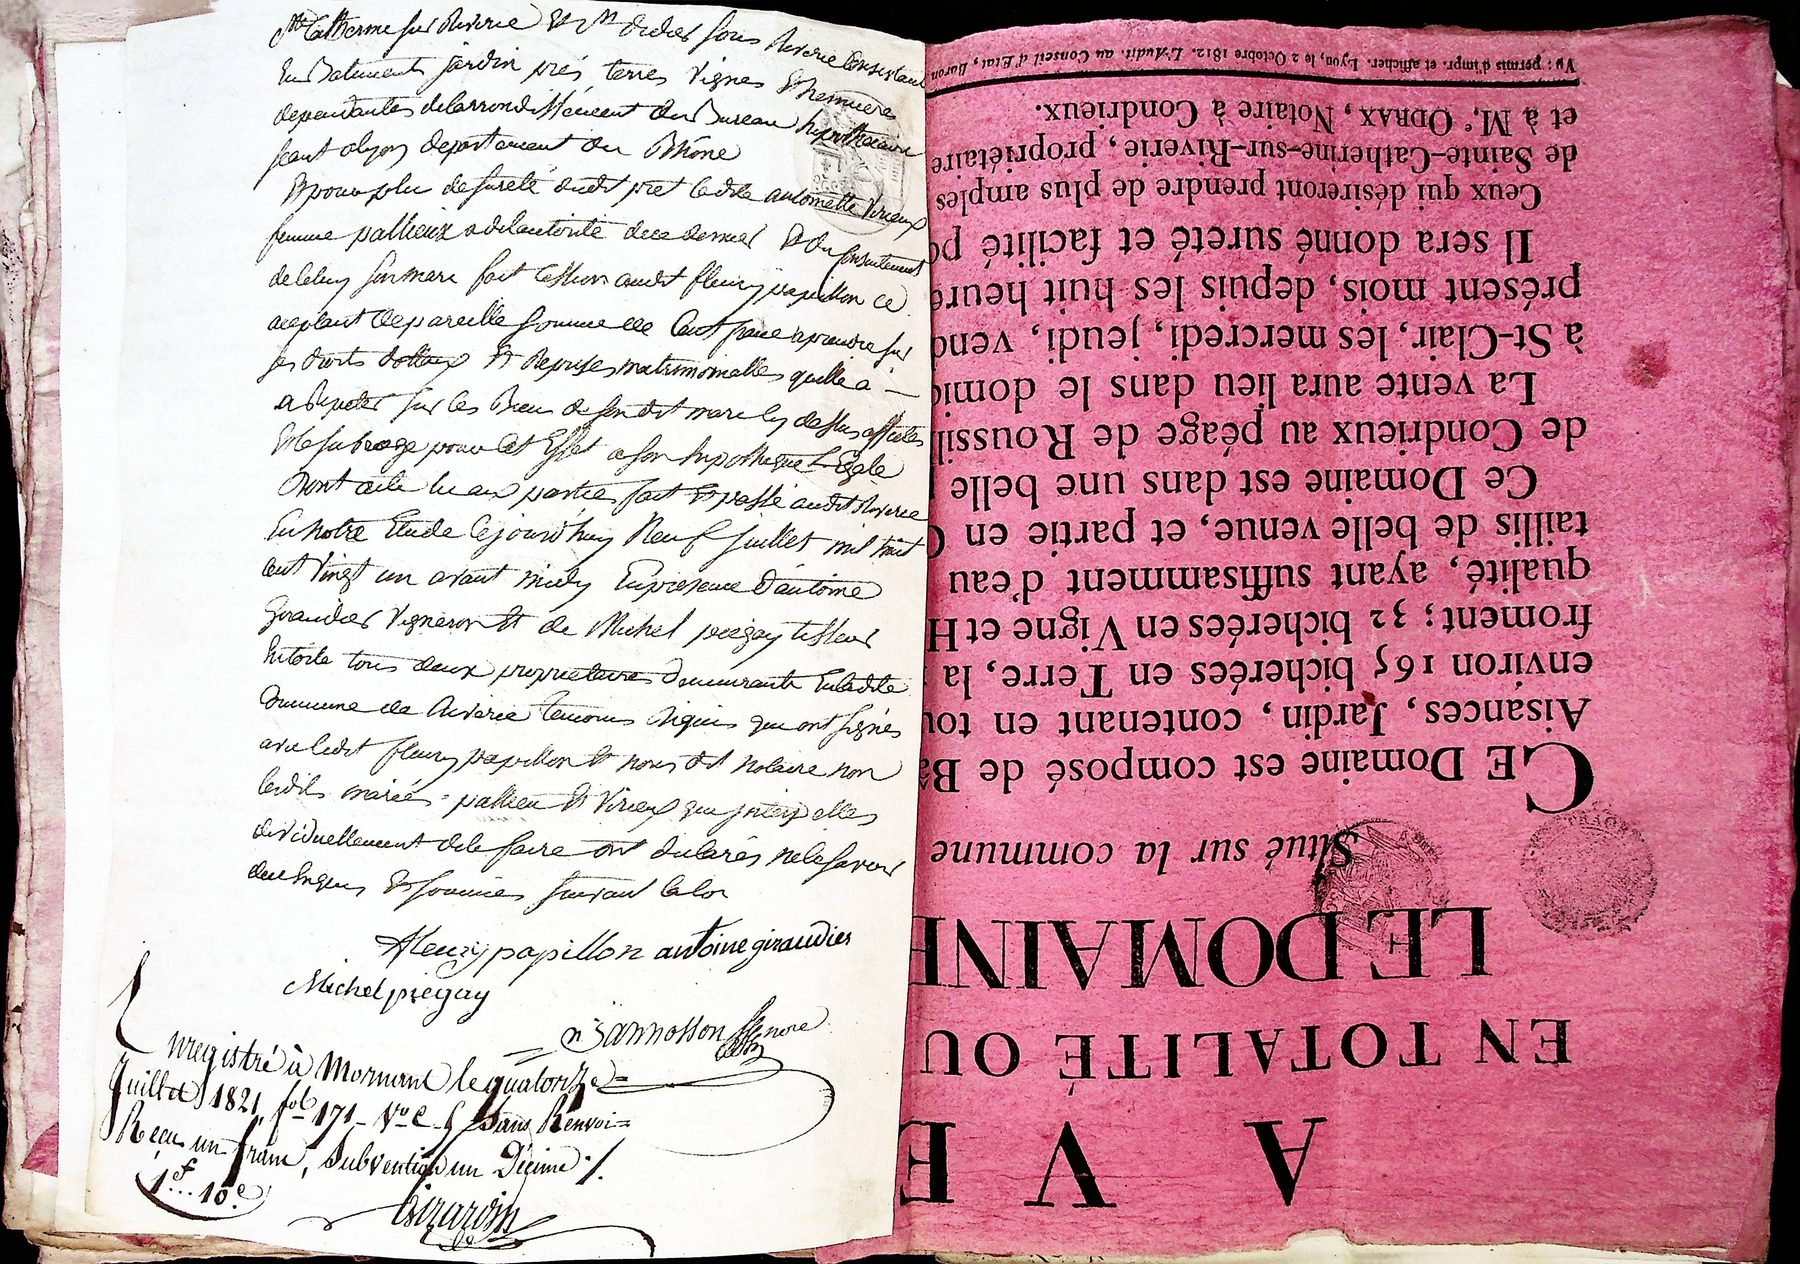 Ste Catherine sur Riverie Et St didier sous Riverie Consistant
En Batiments jardin prés terres Vignes Et hermures
dependantes delarrondissément du Bureau hipothecaire
seant alyon département du Rhône
Et pour plus de sureté dudit pret ladite antoinette Virieux
femme pallieux a delautorité de ce dernier Et du consentement
de celuy son mari fait Cession audit fleury papillon ce
acceptant de pareille somme de Cent franc a prendre sur
ses droits dottaux Et Reprises matrimonielles quelle a
a Repeter sur les Biens de son dit mari cy dessus affectés
Et le subroge pour cet Effet a son hipothèque Légale
Dont acte lu aux parties fait Et passé audit Riverie
En notre Etude Cejourd'huy Neuf juillet mil huit
cent vingt un avant midy En presence d'antoine
Giraudier Vigneron Et de Michel piégay tisseur
En toile tous deux propriétaires demeurants En ladite
Commune de Riverie temoins Requis qui ont signés
avec ledit fleury papillon Et nous dit notaire non
lesdits mariés pallieu Et Virieux qui interpellés
dividuellement de le faire ont declarés ne le savoir
de ce Enquis Et sommés suivant la loi
fleury papillon antoine giraudier
Michel piegay
n jannosson nore
Enregistré à Mornant le quatorze
Juillet 1821, fol 171 Vo C. 5 Sans Renvoi
Reçu un franc, Subvention un Décime ./.
1f...10c
Vu; permis d'impr. et afficher. Lyon, le 2 Octobre 1812. L'Audit. au Conseil d'État, Baron
et à M.e ODRAX, Notaire à Condrieux.
de Sainte-Catherine-sur-Riverie, propriétaire
Ceux qui désireront prendre de plus amples
Il sera donné sureté et facilité po
présent mois, depuis les huit heure
à St-Clair, les mercredi, jeudi, vend
La vente aura lieu dans le domic
de Condrieux au péage de Roussil
Ce Domaine est dans une belle
taillis de belle venue, et partie en
qualité, ayant suffisamment d'eau
froment; 32 bicherées en Vigne et H
environ 165 bicherées en Terre, la
Aisances, Jardin, contenant en tou
CE Domaine est composé de Bâ
Situé sur la commune
LE DOMAINE
EN TOTALITÉ OU
A VE